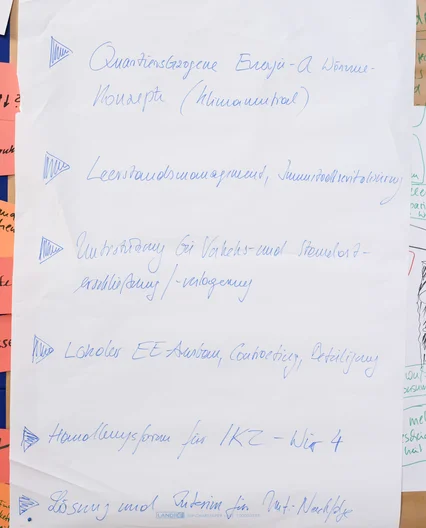 Quartiersbezogene Energie- & Wärme-
Konzepte (klimaneutral)
Leerstandsmanagement, Innenstadtrevitalisierung
Unterstützung bei Verkehrs- und Standort-
erschließung/-verlagerung
Lokaler EE-Ausbau, Contracting, Beteiligung
Handlungsform für IKZ - Wir 4
Lösung und Interim für Unt.-Nachfolge